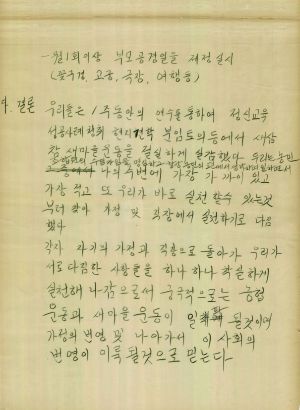 - 월1회이상 부모공경일을 제정 실시
(꽃구경, 고궁, 극장, 여행등)
9. 결론
우리들은 1주동안의 연수를 통하여 정신교육
성공사례 청취 현지견학 분임토의등에서 새삼
참 새마을운동을 절실하게 실감했다 우리는
나의 주변에 가장 가까이 있고
가장 적고 또 우리가 바로 실천할수 있는것
부터 찾아 가정 및 직장에서 실천하기로 다음
했다
각자 자기의 가정과 직장으로 돌아가 우리가
서로 다짐한 사항들을 하나 하나 착실하게
실천해 나감으로서 궁극적으로는
운동과 새마을 운동이 될것이며
가정의 번영 및 나아가서 이 사회의
번영이 이룩될것으로 믿는다